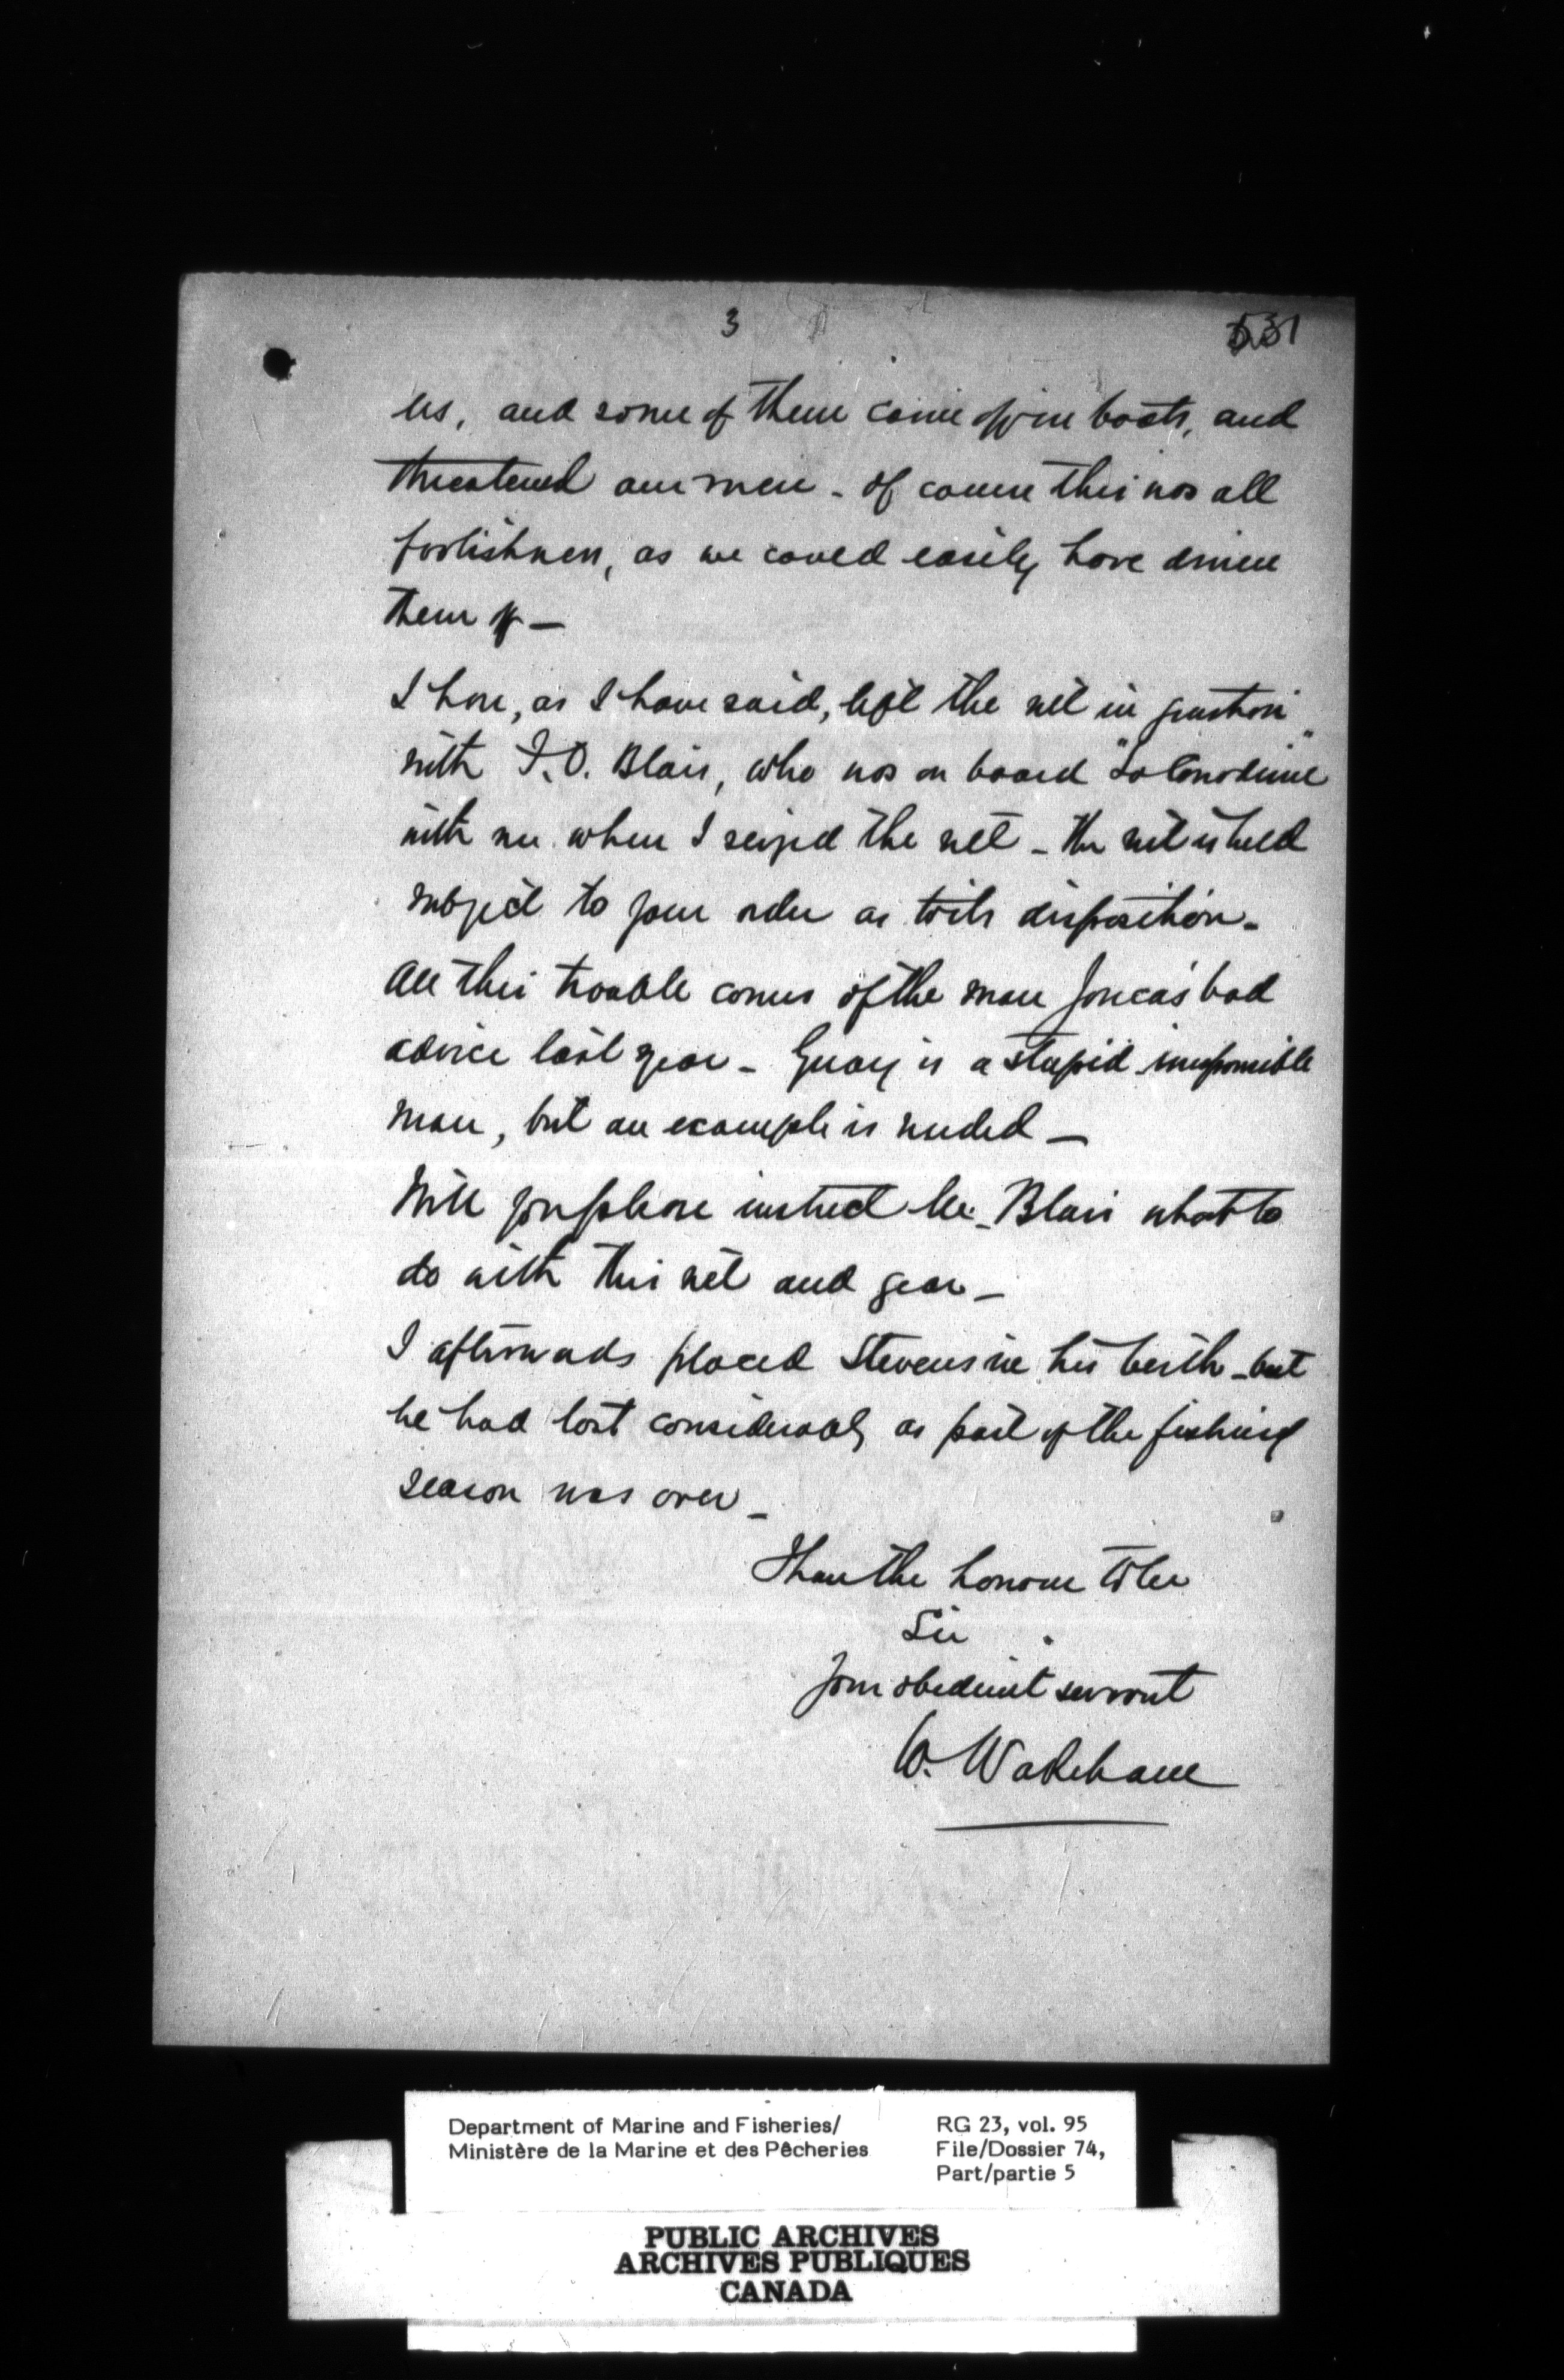 3
531
us, and some of them came off in boats, and
threatened our men - of course this was all
foolishness, as we could easily have driven
them off -
I have, as I have said, left the net in question
with F.O. Blais, who was on board "La Canadienne"
with me when I seized the net - the net is held
subject to your order as to its disposition -
All this trouble comes of the man Joncas' bad
advice last year - Guay is a stupid irresponsible
man, but an example is needed -
Will you please instruct Mr. Blais what to
do with this net and gear -
I afterwards placed Stevens in his berth - but
he had lost considerably as part of the fishing
season was over -
I have the honour to be
Sir
Your obedient servant
W. Wakeham
Department of Marine and Fisheries/
Ministère de la Marine et des Pêcheries
RG 23, vol. 95
File/Dossier 74,
Part/partie 5
PUBLIC ARCHIVES
ARCHIVES PUBLIQUES
CANADA